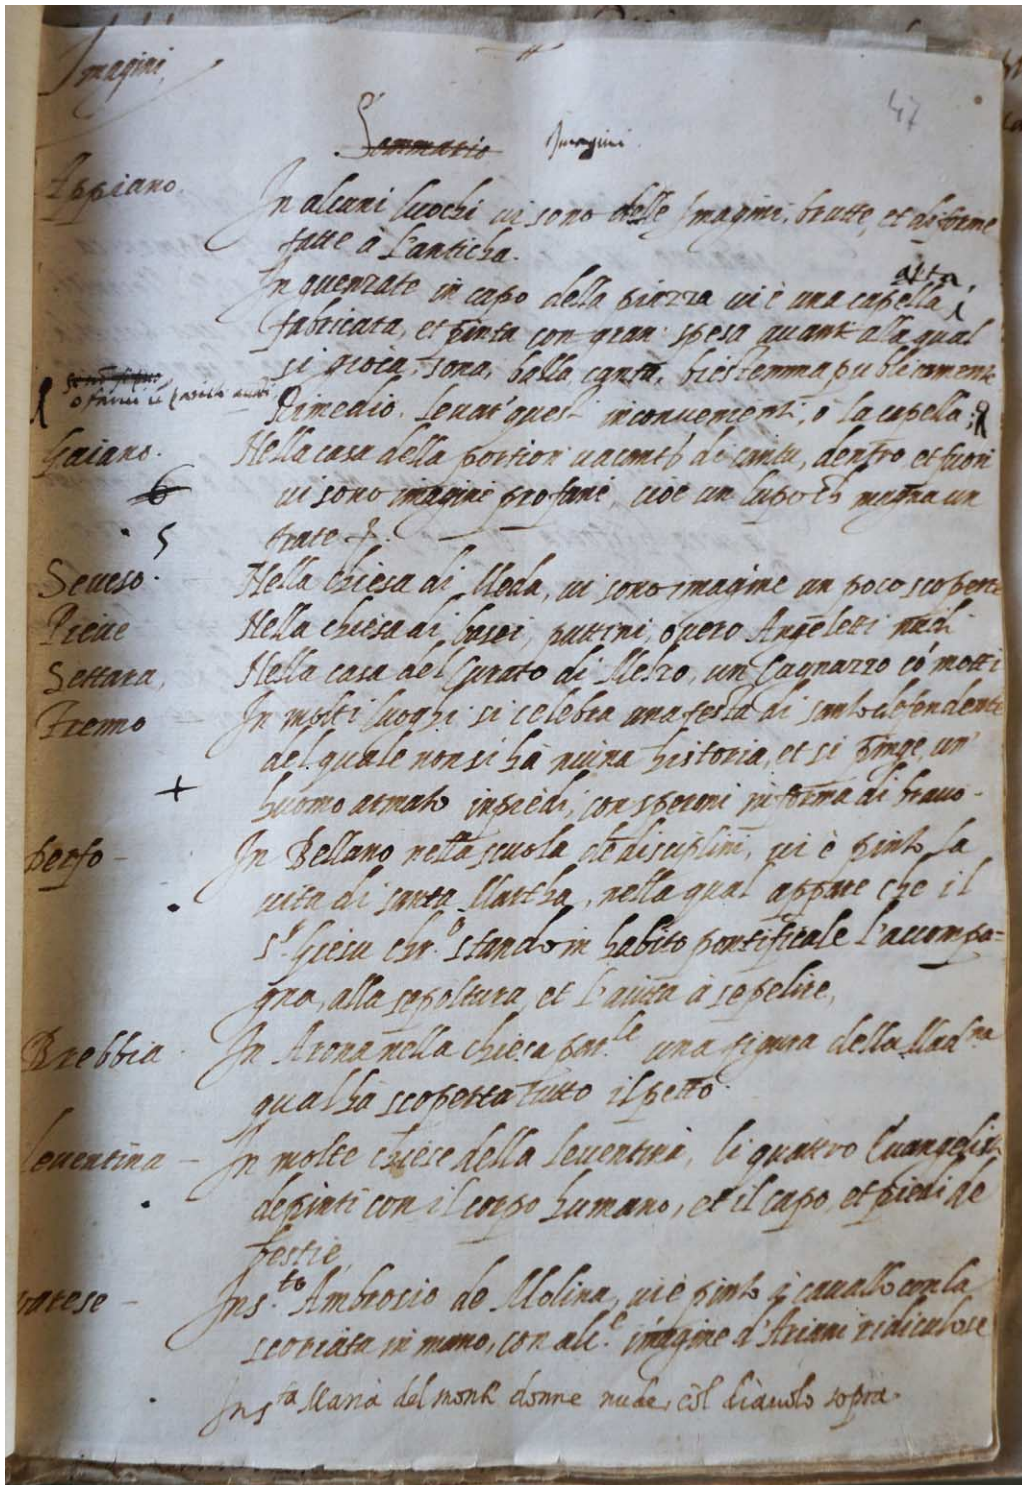 Imagini,
47
Sommario Imagini.
Appiano. In alcuni luochi ui sono delle Imagini, brutte, et diforme
fatte à l'anticha.
In guenzate in capo della piazza ui è una capella alta,
fabricata, et pinta con gran spesa auanti alla qual
si gioca, sona, balla, canta, biestemma publicamente
Rimedio. leuar' questi inconuenienti, o la capella;
Gaiano. Nella casa della portion uacante di cantu, dentro et fuori
6 ui sono imagini profane, cioè un lupo ch magna un
5 frate
Seueso. Nella chiesa di Meda, ui sono imagine un poco scoperte
Pieue Nella chiesa di puttini, ouero Angeletti nudi
Settara, Nella casa del Curato di Melzo, un Cagnazzo cō motti
Trenno In molti luoghi si celebra una festa di santo defendente
del quale non si hà niuna historia, et si pinge, un'
+ huomo armato in piedi, con speroni in forma di brauo.
Perfo In Bellano nella scuola de disciplini, ui è pinto la
uita di santa Martha, nella qual appare che il
s.r Giesu chr.o stando in habito pontificale l'accompa=
gna, alla sepoltura, et l'aiuta à sepelire,
Brebbia In Arona nella chiesa par.le una figura della Mad.na
qual hà scoperta tutto il petto.
Leuentina In molte chiese della leuentina, li quattro Euangelisti
depinti con il corpo humano, et il capo, et piedi de
bestie,
Varese In s.to Ambrosio de Molina, ui è pinto à cauallo con la
scoriata in mano, con alc.e imagine d'Ariani ridiculose
In s.ta Maria del monte donne nude, cōl diauolo sopra.